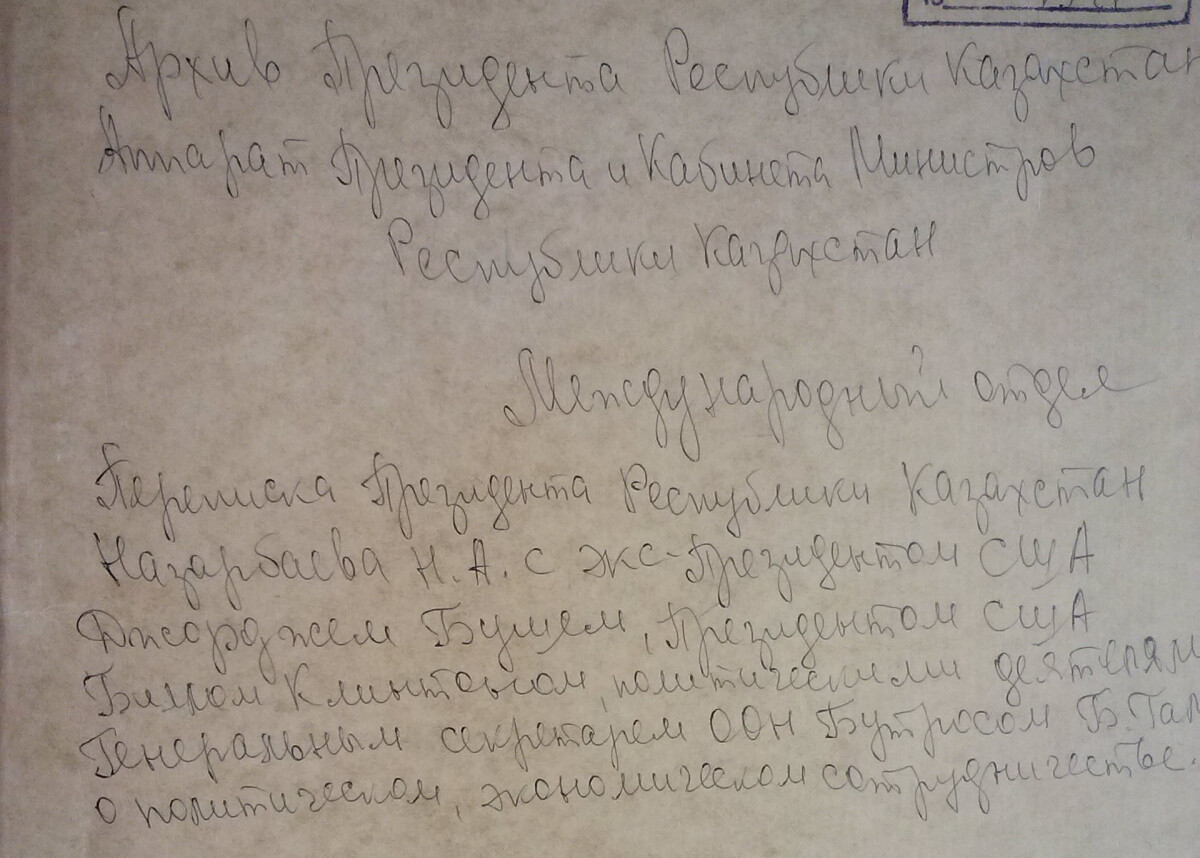 Архив Президента Республики Казахстан
Аппарат Президента и Кабинета Министров
Республики Казахстан
Международный отдел
Переписка Президента Республики Казахстан
Назарбаева Н.А. с экс-Президентом США
Джорджем Бушем, Президентом США
Билом Клинтоном, политическими деятелям
Генеральным секретарем ООН Бутросом Б. Гал
о политическом, экономическом сотрудничестве.